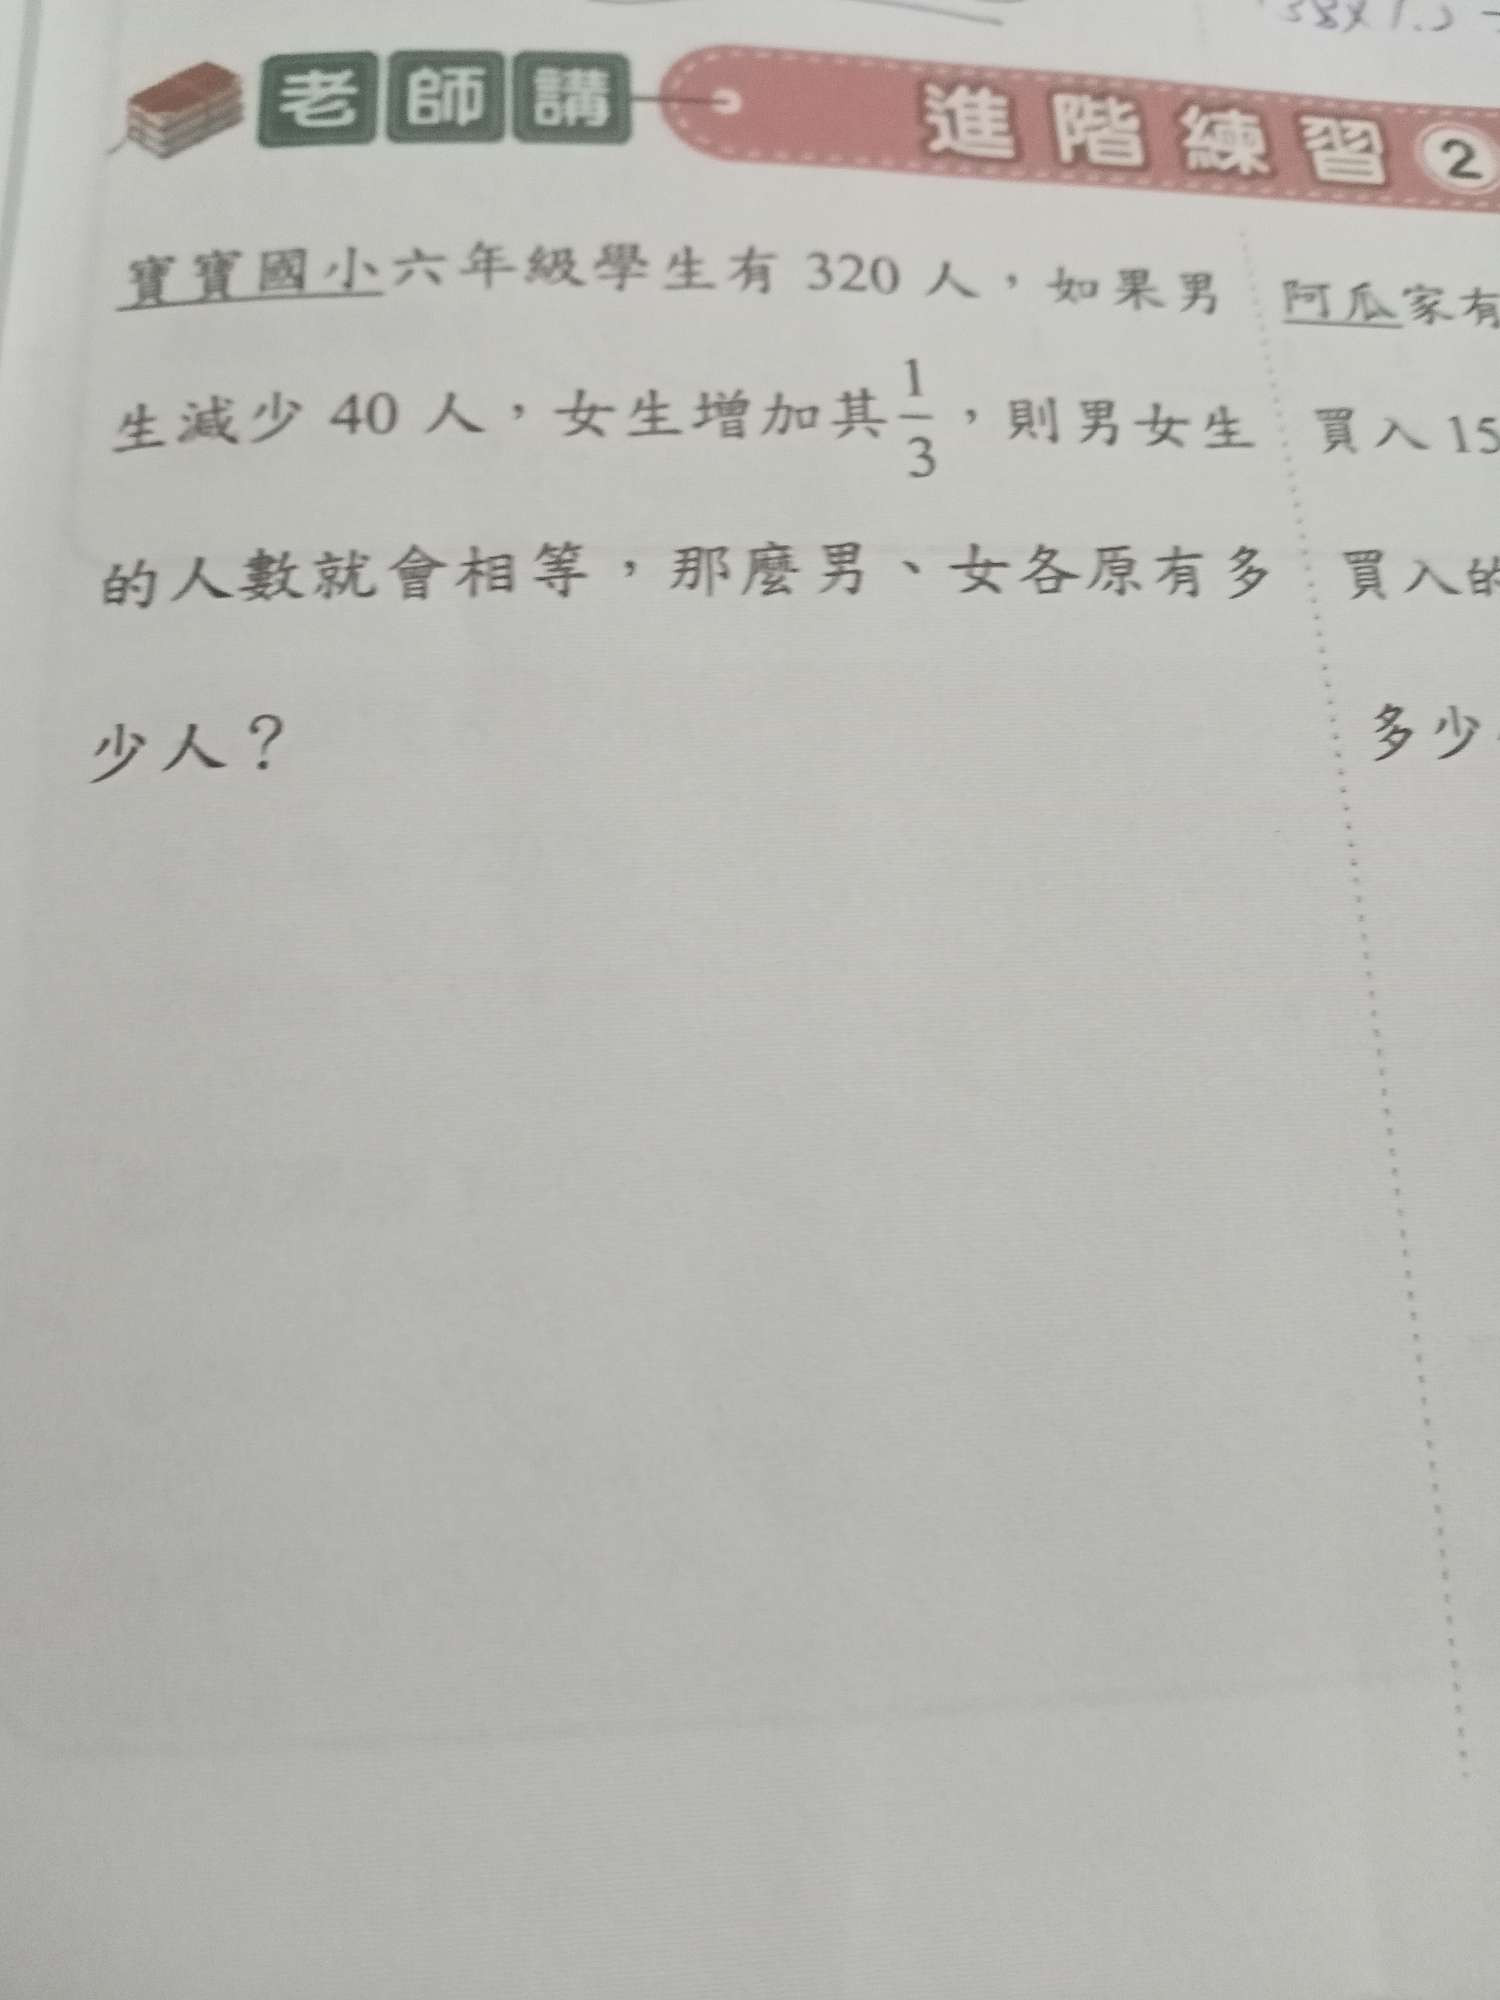 38×1.
老師講 進階練習 2
寶寶國小六年級學生有 320 人，如果男
生減少 40 人，女生增加其 1/3，則男女生
的人數就會相等，那麼男、女各原有多
少人？
阿瓜家有
買入 15
買入的
多少